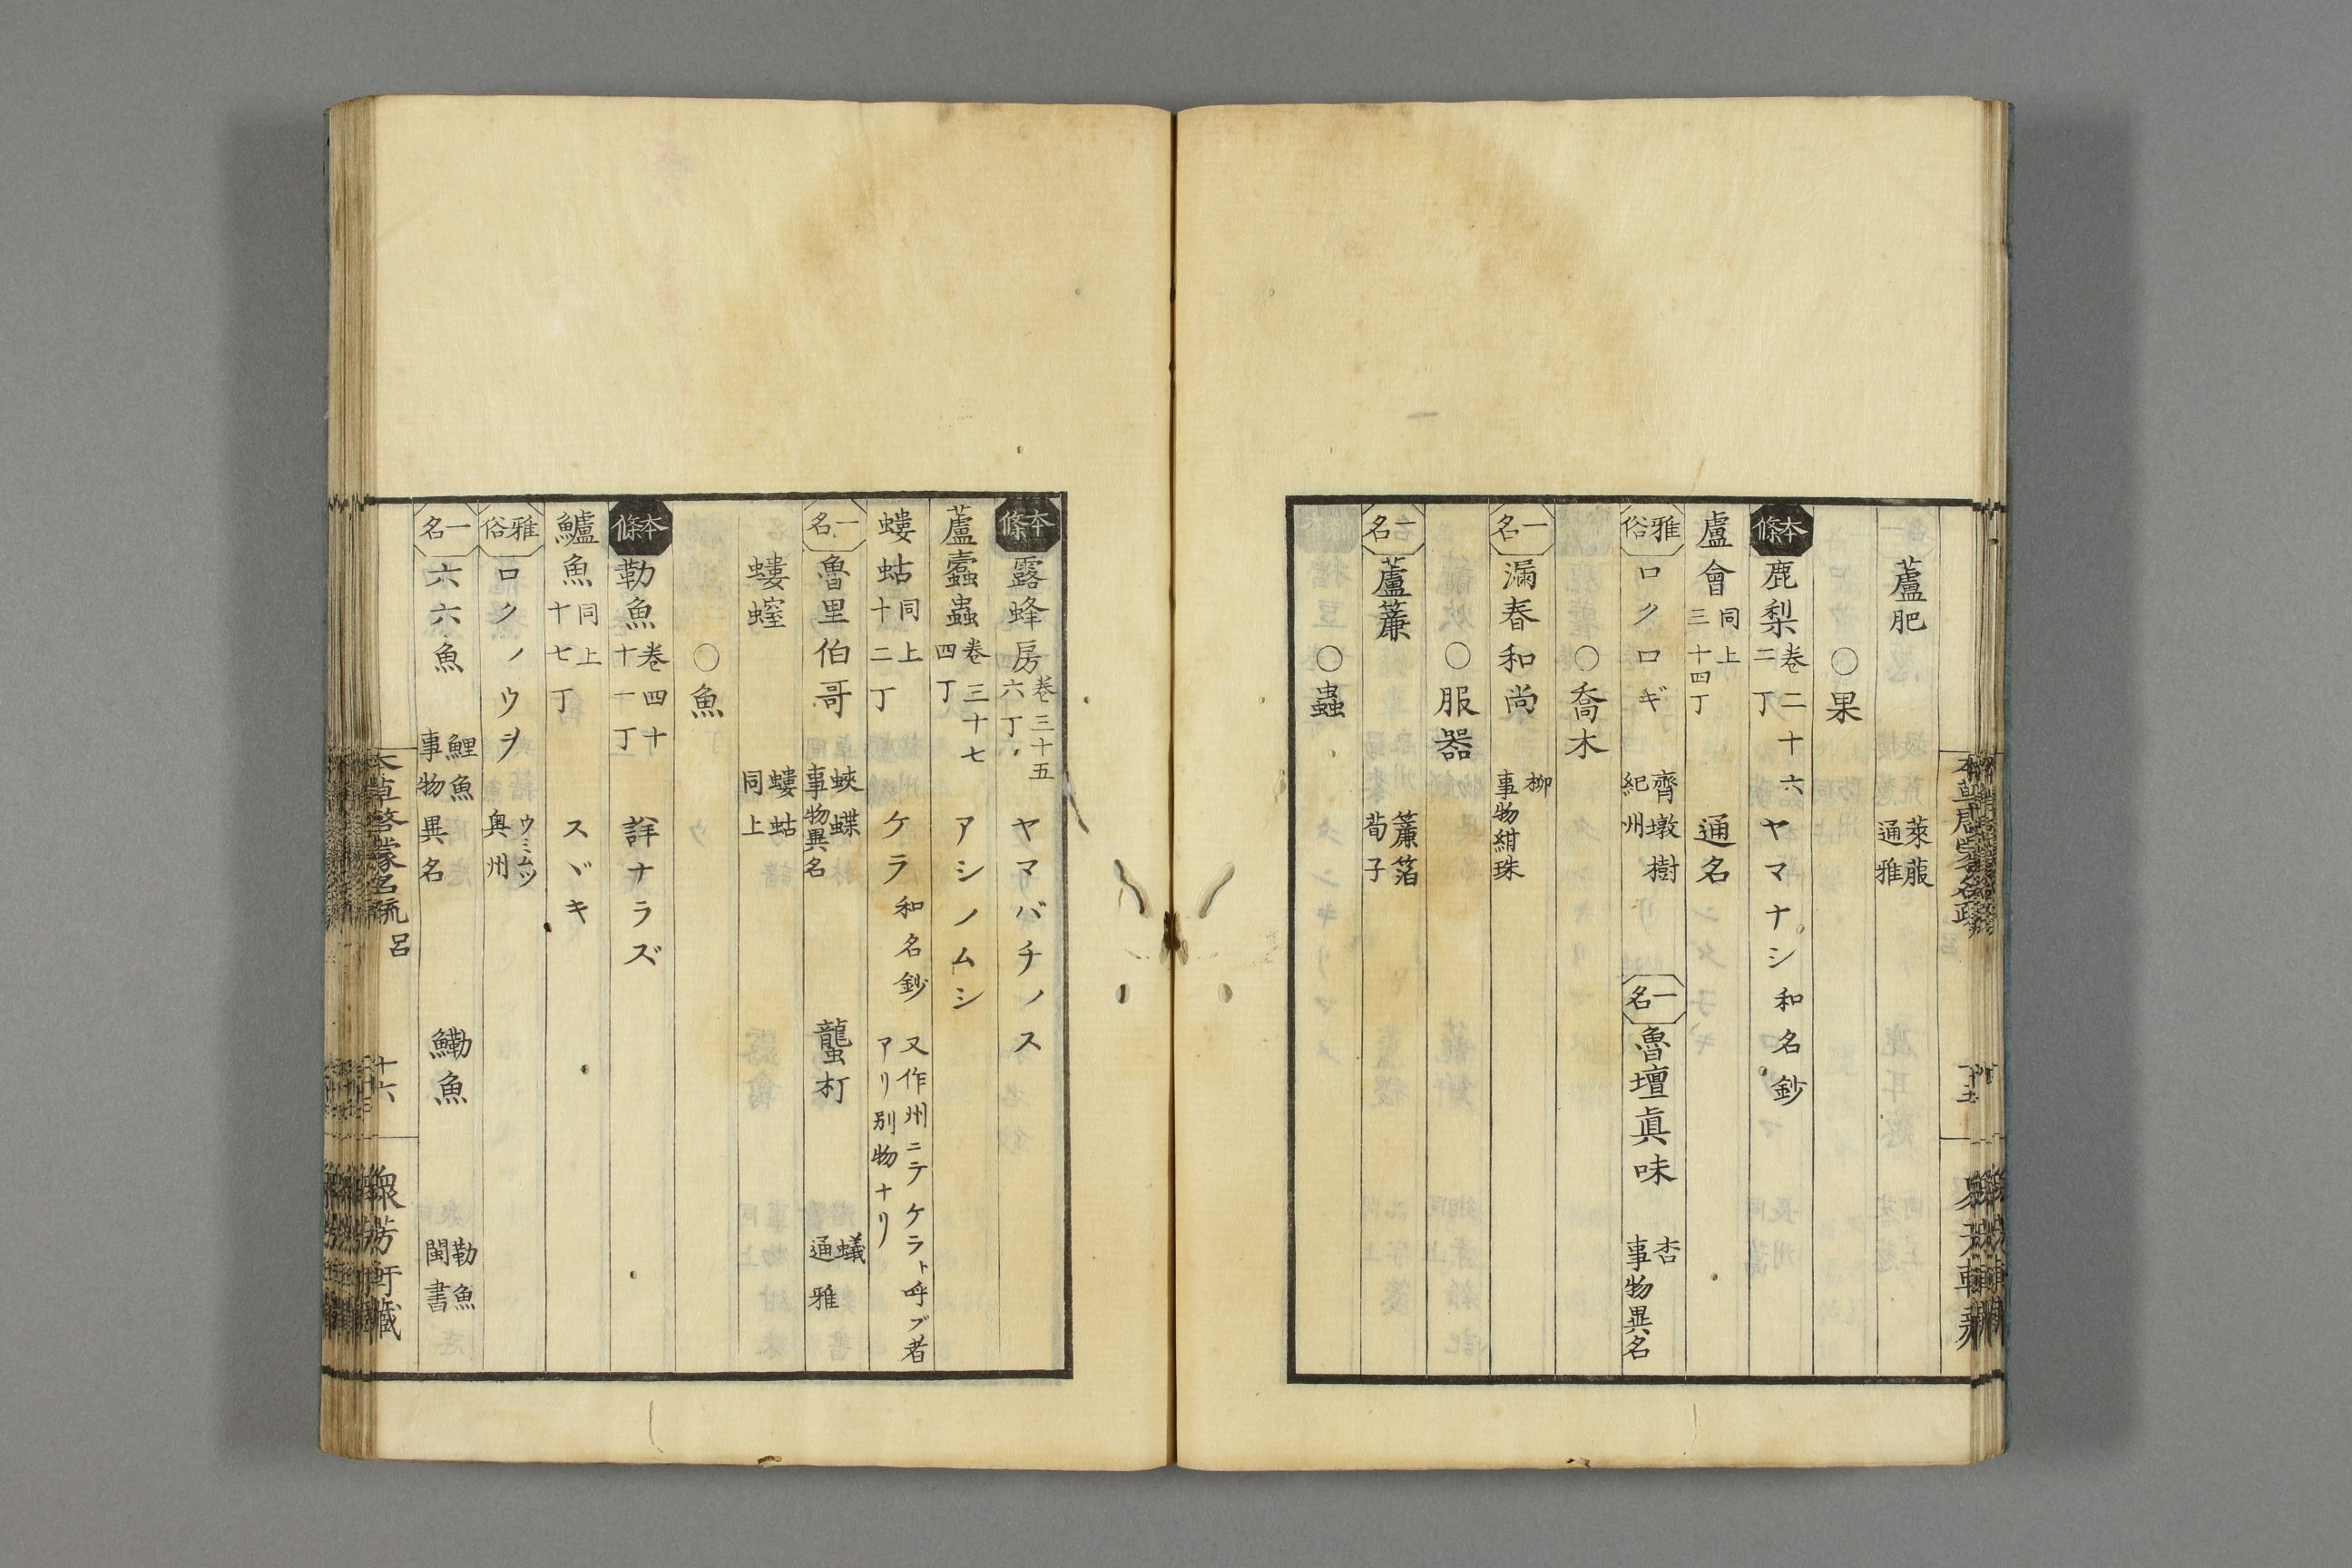 蘆肥 萊菔 通雅
○果
本條 鹿梨 卷二十六 二丁 ヤマナシ 和名鈔
盧會 同上 三十四丁 通名
雅俗 ロクロギ 齊墩樹 紀州 一名 魯壇眞味 杏 事物異名
○喬木
一名 漏春和尚 柳 事物紺珠
○服器
一名 蘆薕 薕箔 荀子
○蟲
本條 露蜂房 卷三十五 六丁 ヤマバチノス
蘆蠹蟲 卷三十七 四丁 アシノムシ
螻蛄 同上 十二丁 ケラ 和名鈔 又作州ニテケラト呼ブ者アリ別物ナリ
一名 魯里伯哥 蛺蝶 事物異名 蠪朾 蟻 通雅
螻螲 螻蛄 同上
○魚
本條 勒魚 卷四十 十一丁 詳ナラズ
鱸魚 同上 十七丁 スヾキ
雅俗 ロクノウヲ ウミムツ 奥州
一名 六六魚 鯉魚 事物異名 鰳魚 勒魚 閩書
本草啓蒙名疏 呂 十六 衆芳軒藏